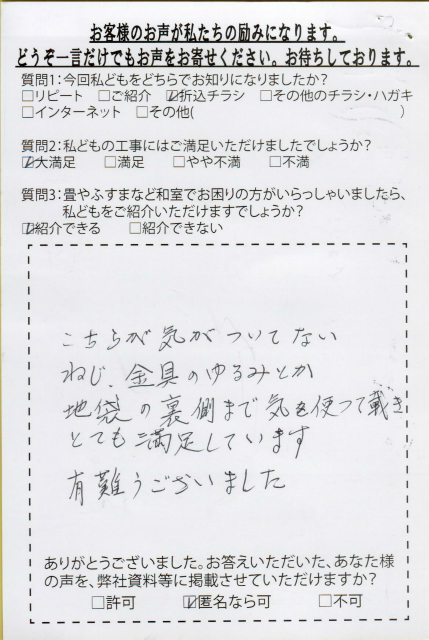 お客様のお声が私たちの励みになります。
どうぞ一言だけでもお声をお寄せください。お待ちしております。
質問1:今回私どもをどちらでお知りになりましたか?
□リピート □ご紹介 ☑折込チラシ □その他のチラシ・ハガキ
□インターネット □その他( )
質問2:私どもの工事にはご満足いただけましたでしょうか?
☑大満足 □満足 □やや不満 □不満
質問3:畳やふすまなど和室でお困りの方がいらっしゃいましたら、
私どもをご紹介いただけますでしょうか?
☑紹介できる □紹介できない
こちらが気がついてない
ねじ、金具のゆるみとか
地袋の裏側まで気を使って戴き
とても満足しています
有難うございました
ありがとうございました。お答えいただいた、あなた様
の声を、弊社資料等に掲載させていただけますか?
□許可 ☑匿名なら可 □不可